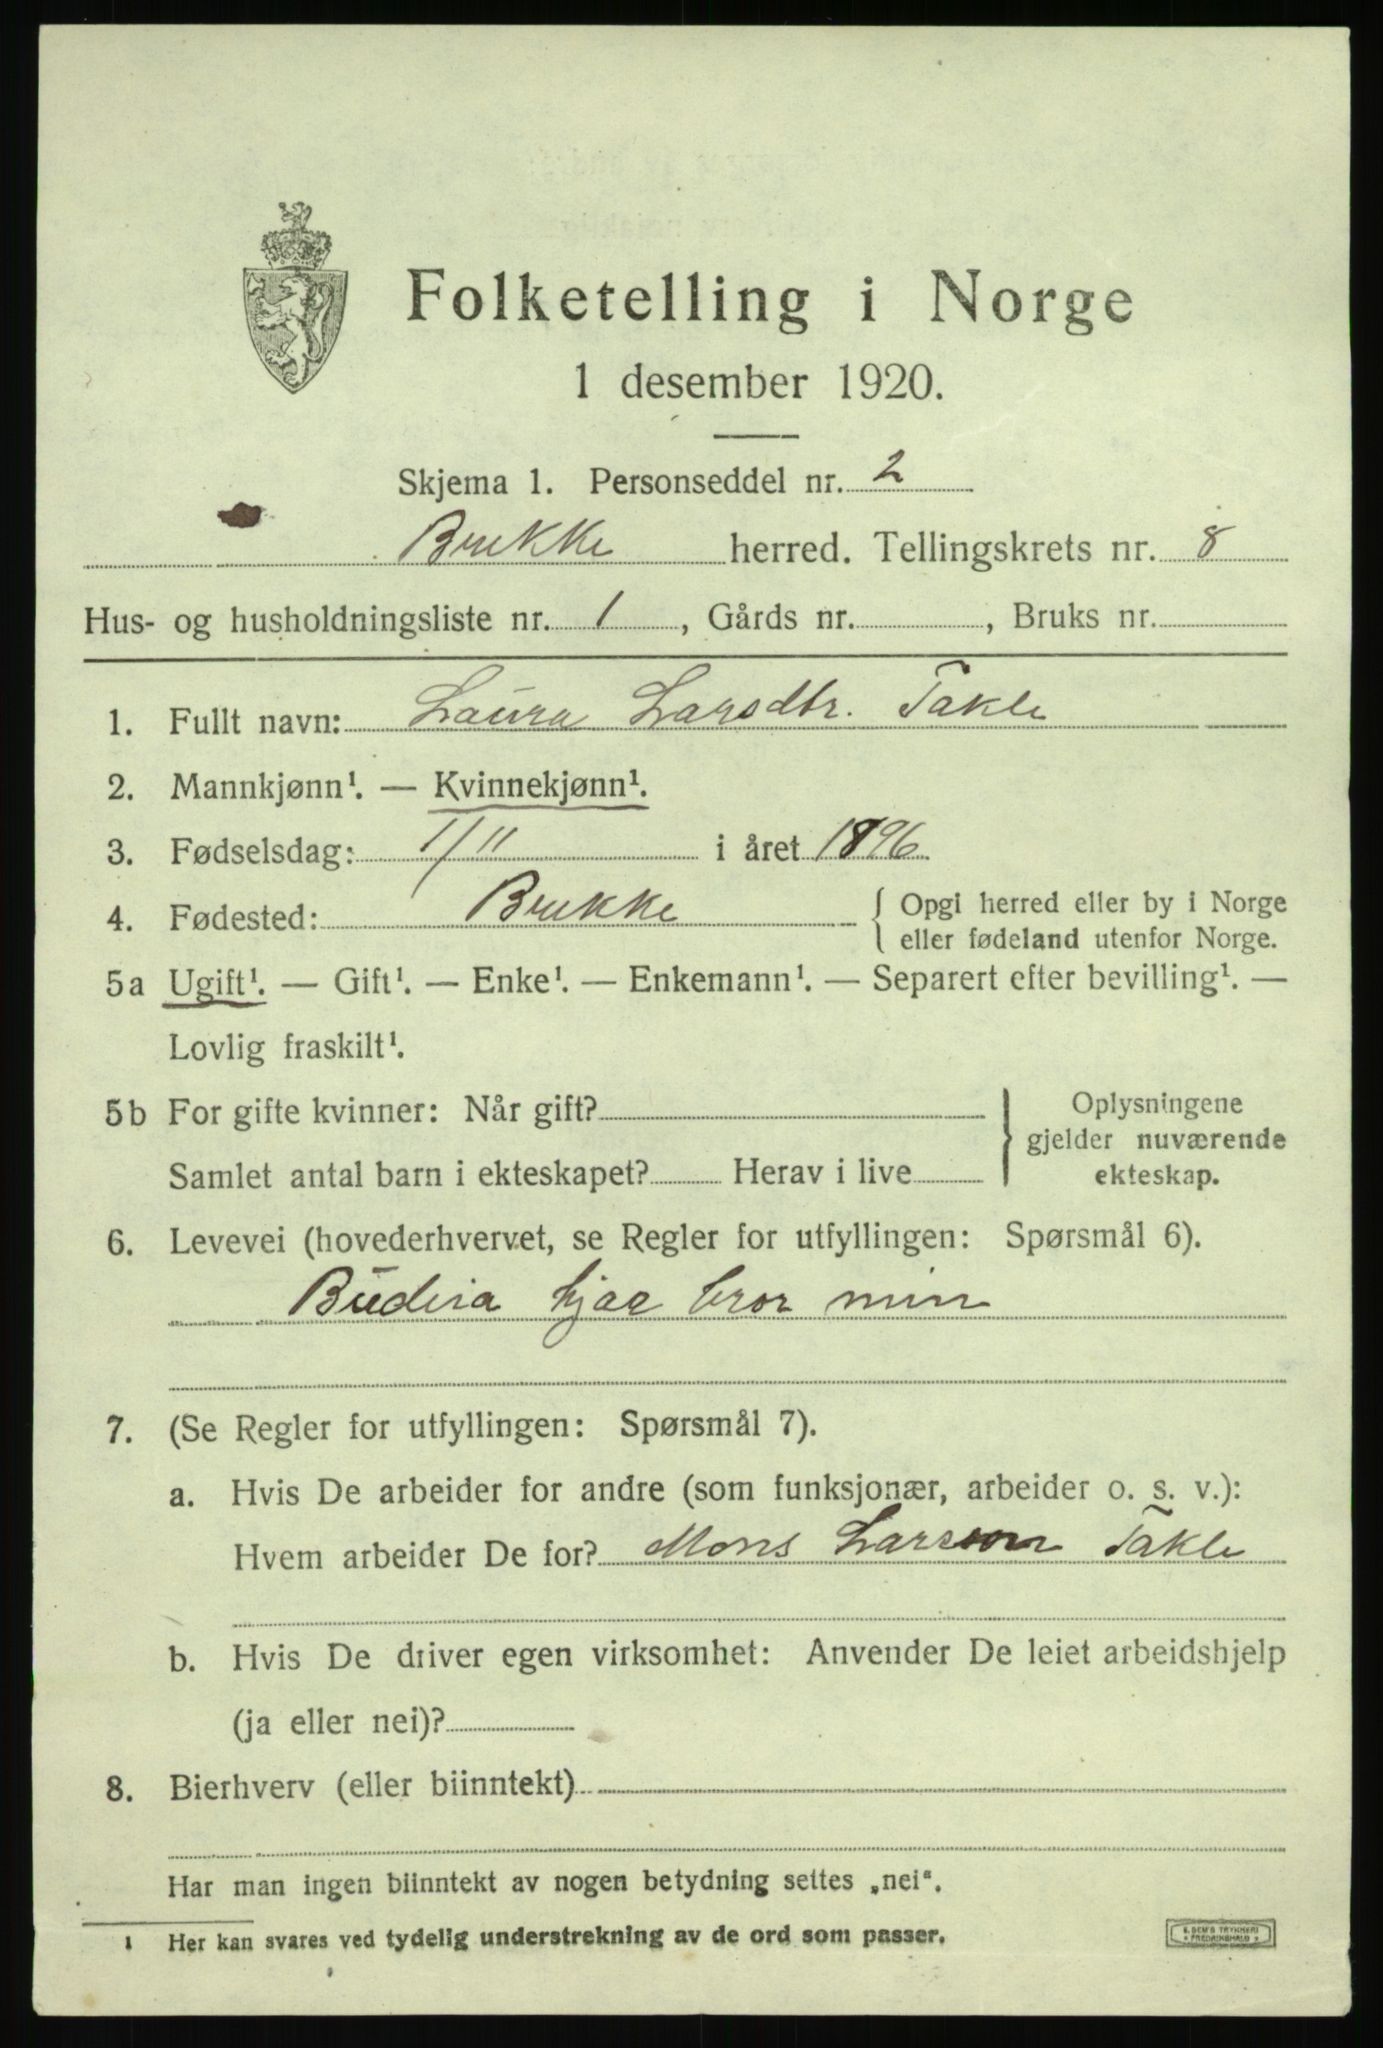 Folketelling i Norge
1 desember 1920.
Skjema 1. Personseddel nr. 2
Brekke herred. Tellingskrets nr. 8
Hus- og husholdningsliste nr. 1, Gårds nr. , Bruks nr.
1. Fullt navn: Laura Larsdtr. Takle
2. Mannkjønn¹. — Kvinnekjønn¹.
3. Fødselsdag: 1/11 i året 1896
4. Fødested: Brekke { Opgi herred eller by i Norge
eller fødeland utenfor Norge.
5a Ugift¹. — Gift¹. — Enke¹. — Enkemann¹. — Separert efter bevilling¹. —
Lovlig fraskilt¹.
5b For gifte kvinner: Når gift? } Oplysningene
gjelder nuværende
Samlet antal barn i ekteskapet? Herav i live ekteskap.
6. Levevei (hovederhvervet, se Regler for utfyllingen: Spørsmål 6).
Budeia hjaa bror min
7. (Se Regler for utfyllingen: Spørsmål 7).
a. Hvis De arbeider for andre (som funksjonær, arbeider o. s. v.):
Hvem arbeider De for? Mons Larsson Takle
b. Hvis De driver egen virksomhet: Anvender De leiet arbeidshjelp
(ja eller nei)?
8. Bierhverv (eller biinntekt)
Har man ingen biinntekt av nogen betydning settes „nei".
1 Her kan svares ved tydelig understrekning av de ord som passer.
E. SEM'S TRYKKERI
FREDRIKSHALD